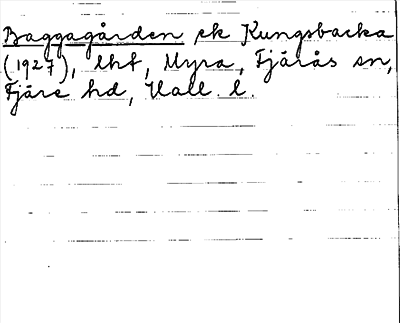 Baggagården ek Kungsbacka
(1927), lht, Myra, Fjärås sn,
Fjäre hd, Hall. l.